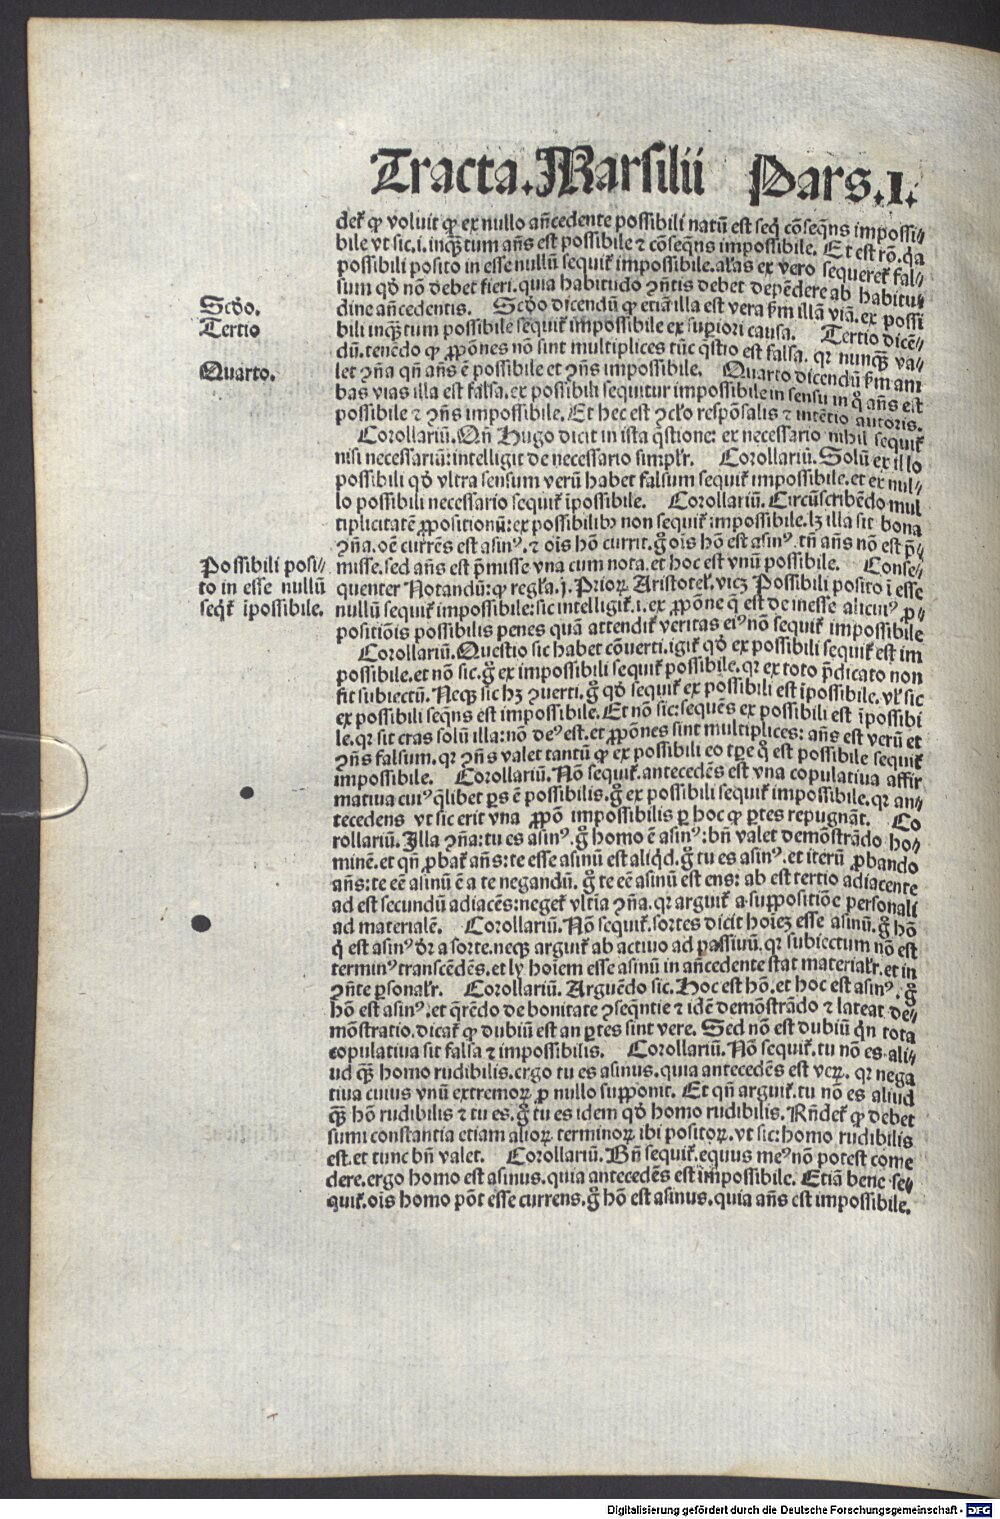 Tracta. Marsilii Pars. I.
det̃ ꝙ voluit ꝙ ex nullo añcedente possibili natũ est seq̃ cõseq̃ns impossi⸗
bile vt sic. i. inquãtum añs est possibile ⁊ cõseq̃ns impossibile. Et est rõ. q̃a
possibili posito in esse nullũ sequit̃ impossibile. alr̃as ex vero sequeret̃ fal⸗
sum qđ nõ debet fieri. quia habitudo ꝯñtis debet depẽdere ab habitu⸗
Scđo.
dine añcedentis. Scđo dicendũ ꝙ etiã illa est vera ẜm illã viã. ex possi
Tertio
bili inquãtum possibile sequit̃ impossibile ex suꝑiori causa. Tertio dicẽ⸗
dũ. tenẽdo ꝙ ꝓpõnes nõ sint multiplices tũc q̃stio est falsa. qꝛ nunquã va⸗
Quarto.
let ꝯñа qñ añs ẽ possibile et ꝯñs impossibile. Quarto dicendũ ẜm am
bas vias illa est falsa. ex possibili sequitur impossibile in sensu in q̊ añs est
possibile ⁊ ꝯñs impossibile. Et hec est ꝯcło respõsalis ⁊ intẽtio autoris.
Corollariũ. Qñ Hugo dicit in ista q̃stione: ex necessario nihil sequit̃
nisi necessariũ: intelligit de necessario simplr̃. Corollariũ. Solũ ex illo
possibili qđ vltra sensum verũ habet falsum sequit̃ impossibile. et ex nul⸗
lo possibili necessario sequit̃ ĩpossibile. Corollariũ. Circũscribẽdo mul
tiplicitatẽ ꝓpositionũ: ex possibilibꝫ non sequit̃ impossibile. lꝫ illa sit bona
ꝯña. oẽ currẽs est asinꝰ. ⁊ oĩs hõ currit. g̊ oĩs hõ est asinꝰ. tñ añs nõ est p̃⸗
Possibili posi⸗
misse. sed añs est p̃misse vna cum nota. et hoc est vnũ possibile. Conse⸗
to in esse nullũ
quenter Notandũ: ꝙ regła. j. Prioꝝ Aristotel̃. vicꝫ Possibili posito ĩ esse
seqt̃ ĩpossibile.
nullũ sequit̃ impossibile: sic intelligit̃. i. ex ꝓpõne q̃ est de inesse alicuiꝰ ꝓ⸗
positiõis possibilis penes quã attendit̃ veritas eiꝰ nõ sequit̃ impossibile
Corollariũ. Questio sic habet cõuerti. igit̃ qđ ex possibili sequit̃ est im
possibile. et nõ sic. g̊ ex impossibili sequit̃ possibile. qꝛ ex toto p̃dicato non
fit subiectũ. Neqꝫ sic hꝫ ꝯuerti. g̊ qđ sequit̃ ex possibili est ĩpossibile. vł sic
ex possibili seq̃ns est impossibile. Et nõ sic: sequẽs ex possibili est ĩpossibi
le. qꝛ sit cras solũ illa: nõ deꝰ est. et ꝓpõnes sint multiplices: añs est verũ et
ꝯñs falsum. qꝛ ꝯñs valet tantũ ꝙ ex possibili eo tꝑe q̊ est possibile sequit̃
impossibile. Corollariũ. Nõ sequit̃. antecedẽs est vna copulatiua affir
matiua cuiꝰ q̃libet ꝑs ẽ possibilis. g̊ ex possibili sequit̃ impossibile. qꝛ an⸗
tecedens vt sic erit vna ꝓpõ impossibilis ꝑ hoc ꝙ ꝑtes repugnãt. Co
rollariũ. Illa ꝯña: tu es asinꝰ. g̊ homo ẽ asinꝰ: bñ valet demõstrãdo ho⸗
minẽ. et qñ ꝓbat̃ añs: te esse asinũ est aliq̃d. g̊ tu es asinꝰ. et iterũ ꝓbando
añs: te eẽ asinũ ẽ a te negandũ. g̊ te eẽ asinũ est ens: ab est tertio adiacente
ad est secundũ adiacẽs: neget̃ vltĩa ꝯña. qꝛ arguit̃ a suppositiõe personali
ad materialẽ. Corollariũ. Nõ sequit̃. sortes dicit hoĩeꝫ esse asinũ. g̊ hõ
q̃ est asinꝰ đr a sorte. neqꝫ arguit̃ ab actiuo ad passiuũ. qꝛ subiectum nõ est
terminꝰ transcẽdẽs. et ly hoĩem esse asinũ in añcedente stat materialr̃. et in
ꝯñte ꝑsonalr̃. Corollariũ. Arguẽdo sic. Hoc est hõ. et hoc est asinꝰ. g̊
hõ est asinꝰ. et q̃rẽdo de bonitate ꝯseq̃ntie ⁊ idẽ demõstrãdo ⁊ lateat de⸗
mõstratio. dicat̃ ꝙ dubiũ est an ꝑtes sint vere. Sed nõ est dubiũ q̃n tota
copulatiua sit falsa ⁊ impossibilis. Corollariũ. Nõ sequit̃. tu nõ es ali⸗
ud quã homo rudibilis. ergo tu es asinus. quia antecedẽs est veꝝ. qꝛ nega
tiua cuius vnũ extremoꝝ ꝓ nullo supponit. Et qñ arguit̃. tu nõ es aliud
quã hõ rudibilis ⁊ tu es. g̊ tu es idem qđ homo rudibilis. Rñdet̃ ꝙ debet
sumi constantia etiam alioꝝ terminoꝝ ibi positoꝝ. vt sic: homo rudibilis
est. et tunc bñ valet. Corollariũ. Bñ sequit̃. equus meꝰ nõ potest come
dere. ergo homo est asinus. quia antecedẽs est impossibile. Etiã bene se⸗
quit̃. oĩs homo põt esse currens. g̊ hõ est asinus. quia añs est impossibile.
Digitalisierung gefördert durch die Deutsche Forschungsgemeinschaft - DFG